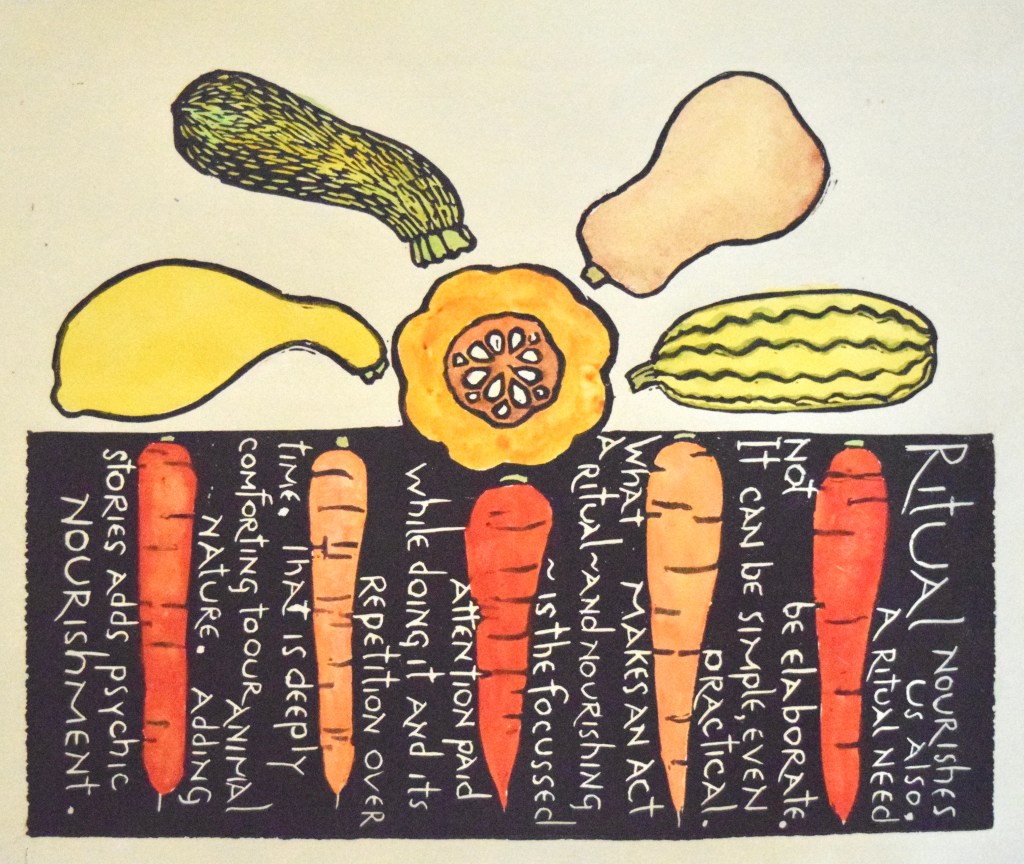 RITUAL NOURISHES
US ALSO.
A RITUAL NEED
NOT BE ELABORATE.
IT CAN BE SIMPLE, EVEN
PRACTICAL.
WHAT MAKES AN ACT
A RITUAL ~ AND NOURISHING
~ IS THE FOCUSSED
ATTENTION PAID
WHILE DOING IT AND ITS
REPETITION OVER
TIME. THAT IS DEEPLY
COMFORTING TO OUR ANIMAL
NATURE. ADDING
STORIES ADDS PSYCHIC
NOURISHMENT.